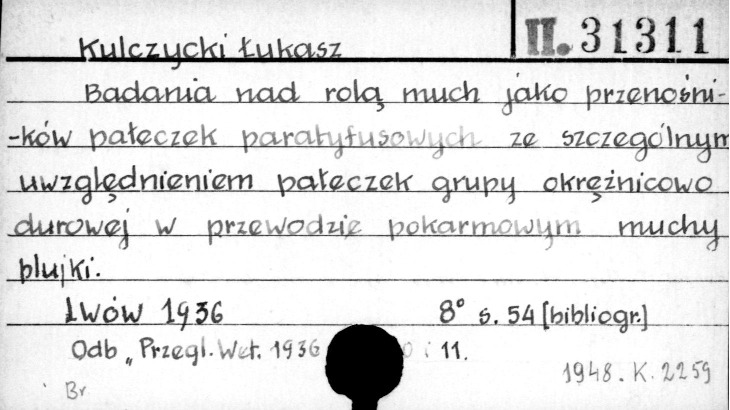 II. 31311
Kulczycki Łukasz
Badania nad rolą much jako przenośni-
-ków pałeczek paratyfusowych ze szczególnym
uwzględnieniem pałeczek grupy okrężnicowo
durowej w przewodzie pokarmowym muchy
plujki.
Lwów 1936 8° s. 54 [bibliogr.]
Odb „Przegl. Wet. 1936 0 i 11.
1948. K. 2259
Br